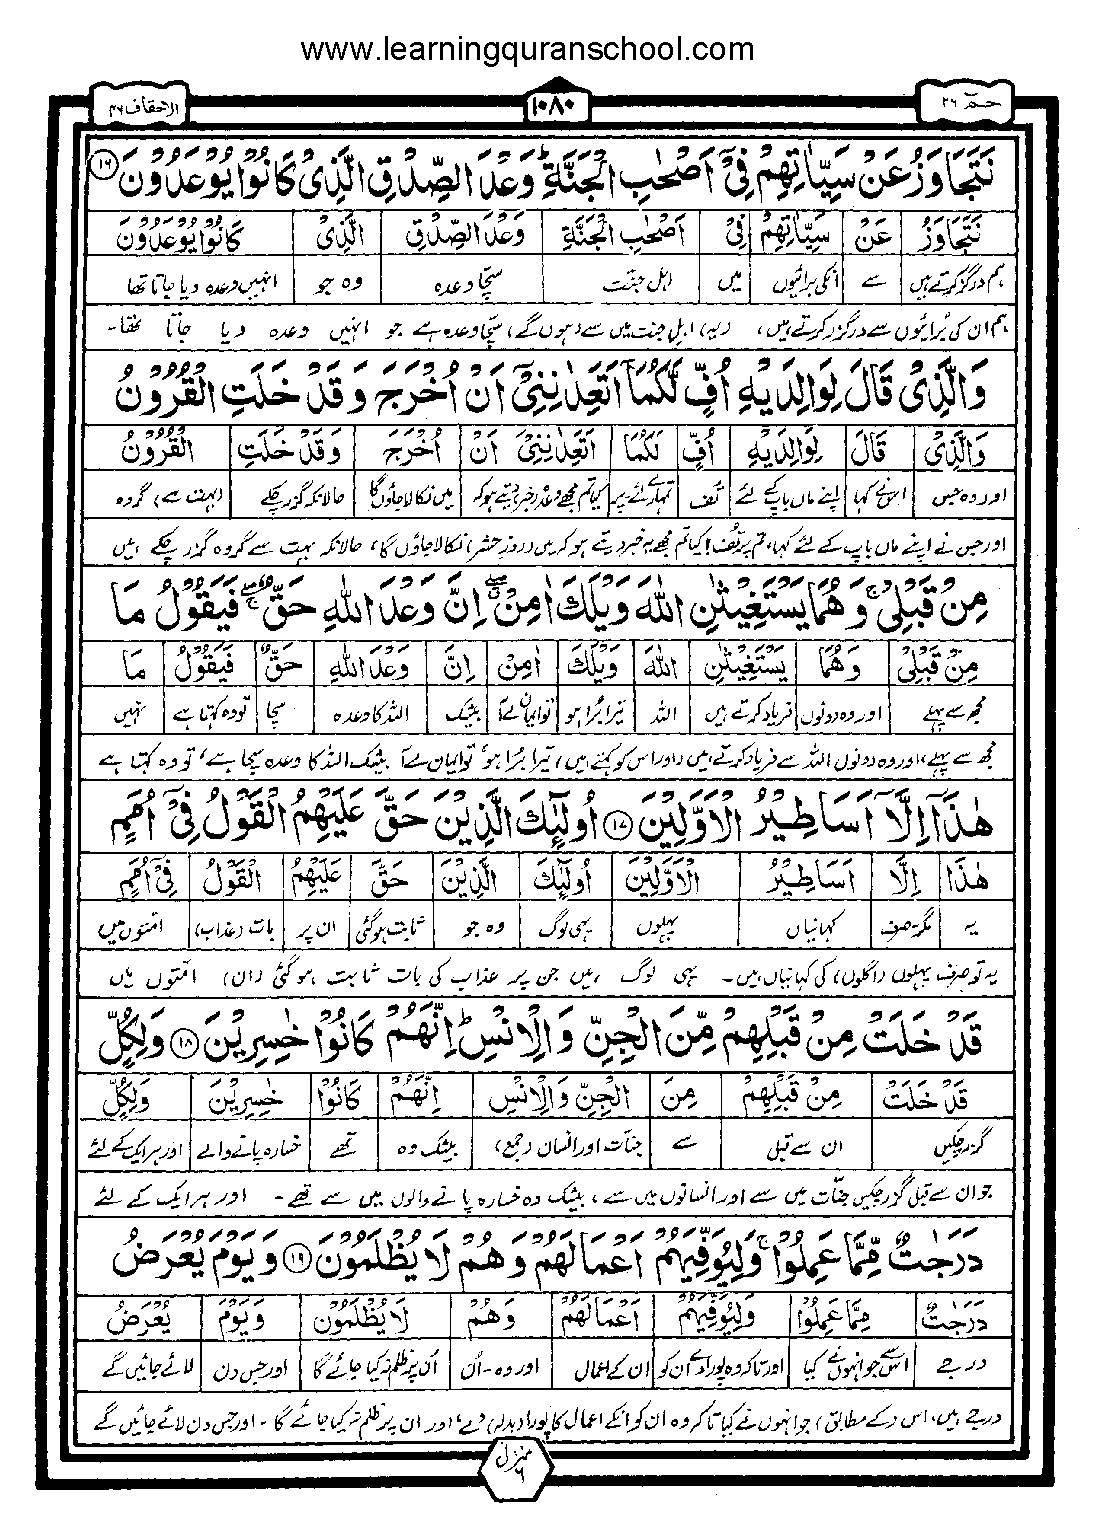 www.learningquranschool.com
حٰمٓ ۲۶
۱۰۸۰
الاحقاف ۴۶
نَتَجَاوَزُ عَنْ سَيِّاٰتِهِمْ فِيْٓ اَصْحٰبِ الْجَنَّةِ ؕ وَعْدَ الصِّدْقِ الَّذِيْ كَانُوْا يُوْعَدُوْنَ ۱۶
نَتَجَاوَزُ عَنْ سَيِّاٰتِهِمْ فِيْٓ اَصْحٰبِ الْجَنَّةِ وَعْدَ الصِّدْقِ الَّذِيْ كَانُوْا يُوْعَدُوْنَ
ہم درگزر کرتے ہیں سے انکی برائیوں میں اہل جنت سچا وعدہ وہ جو انہیں وعدہ دیا جاتا تھا
ہم ان کی برائیوں سے درگزر کرتے ہیں، (یہ) اہل جنت میں سے (ہوں گے) سچا وعدہ ہے جو انہیں وعدہ دیا جاتا تھا۔
وَالَّذِيْ قَالَ لِوَالِدَيْهِ اُفٍّ لَّكُمَآ اَتَعِدٰنِنِيْٓ اَنْ اُخْرَجَ وَقَدْ خَلَتِ الْقُرُوْنُ
وَالَّذِيْ قَالَ لِوَالِدَيْهِ اُفٍّ لَّكُمَا اَتَعِدٰنِنِيْٓ اَنْ اُخْرَجَ وَقَدْ خَلَتِ الْقُرُوْنُ
اور وہ جس اس نے کہا اپنے ماں باپ کے لئے تُف تمہارے لئے۔پر کیا تم مجھے وعدہ خبر دیتے ہو کہ میں نکالا جاؤں گا حالانکہ گزر چکے (بہت سے) گروہ
اور جس نے اپنے ماں باپ کے لئے کہا، تم پر تُف! کیا تم مجھے یہ خبر دیتے ہو کہ میں (روز حشر) نکالا جاؤں گا، حالانکہ بہت سے گروہ گزر چکے ہیں
مِنْ قَبْلِيْ ۚ وَهُمَا يَسْتَغِيْثٰنِ اللّٰهَ وَيْلَكَ اٰمِنْ ۖ اِنَّ وَعْدَ اللّٰهِ حَقٌّ ۚۖ فَيَقُوْلُ مَا
مِنْ قَبْلِيْ وَهُمَا يَسْتَغِيْثٰنِ اللّٰهَ وَيْلَكَ اٰمِنْ اِنَّ وَعْدَ اللّٰهِ حَقٌّ فَيَقُوْلُ مَا
مجھ سے پہلے اور وہ دونوں فریاد کرتے ہیں اللہ تیرا برا ہو تو ایمان لے آ بیشک اللہ کا وعدہ سچا تو وہ کہتا ہے نہیں
مجھ سے پہلے، اور وہ دونوں اللہ سے فریاد کرتے ہیں (اور اس کو کہتے ہیں) تیرا برا ہو، تو ایمان لے آ بیشک اللہ کا وعدہ سچا ہے، تو وہ کہتا ہے
هٰذَآ اِلَّآ اَسَاطِيْرُ الْاَوَّلِيْنَ ۱۷ اُولٰٓئِكَ الَّذِيْنَ حَقَّ عَلَيْهِمُ الْقَوْلُ فِيْٓ اُمَمٍ
هٰذَا اِلَّا اَسَاطِيْرُ الْاَوَّلِيْنَ اُولٰٓئِكَ الَّذِيْنَ حَقَّ عَلَيْهِمُ الْقَوْلُ فِيْٓ اُمَمٍ
یہ مگر۔صرف کہانیاں پہلوں یہی لوگ وہ جو ثابت ہوگئی ان پر بات (عذاب) امتوں میں
یہ تو صرف پہلوں (اگلوں) کی کہانیاں ہیں۔ یہی لوگ ہیں جن پر عذاب کی بات ثابت ہوگئی (ان) امتوں میں
قَدْ خَلَتْ مِنْ قَبْلِهِمْ مِّنَ الْجِنِّ وَالْاِنْسِ ؕ اِنَّهُمْ كَانُوْا خٰسِرِيْنَ ۱۸ وَلِكُلٍّ
قَدْ خَلَتْ مِنْ قَبْلِهِمْ مِنَ الْجِنِّ وَالْاِنْسِ اِنَّهُمْ كَانُوْا خٰسِرِيْنَ وَلِكُلٍّ
گزر چکیں ان سے قبل سے جنّات اور انسان (جمع) بیشک وہ تھے خسارہ پانے والے اور ہر ایک کے لئے
جو ان سے قبل گزر چکیں جنّات میں سے اور انسانوں میں سے، بیشک وہ خسارہ پانے والوں میں سے تھے۔ اور ہر ایک کے لئے
دَرَجٰتٌ مِّمَّا عَمِلُوْا ۚ وَلِيُوَفِّيَهُمْ اَعْمَالَهُمْ وَهُمْ لَا يُظْلَمُوْنَ ۱۹ وَيَوْمَ يُعْرَضُ
دَرَجٰتٌ مِّمَّا عَمِلُوْا وَلِيُوَفِّيَهُمْ اَعْمَالَهُمْ وَهُمْ لَا يُظْلَمُوْنَ وَيَوْمَ يُعْرَضُ
درجے اس سے جو انہوں نے کیا اور تاکہ وہ پورا دے ان کو ان کے اعمال اور وہ۔ان اُن پر ظلم نہ کیا جائے گا اور جس دن لائے جائیں گے
درجے ہیں، اس (کے مطابق) جو انہوں نے کیا تاکہ وہ ان کو انکے اعمال کا پورا (بدلہ) دے، اور ان پر ظلم نہ کیا جائے گا۔ اور جس دن لائے جائیں گے
منزل ۶